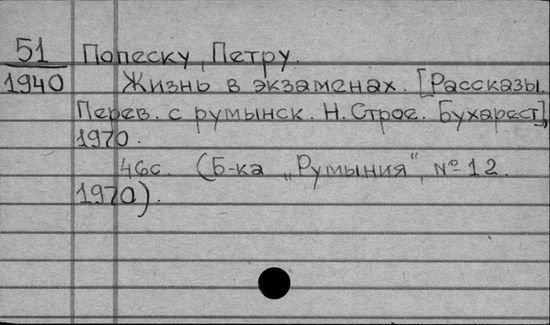 51 Попеску, Петру.
1940 Жизнь в экзаменах. [Рассказы.
Перев. с румынск. Н. Строе. Бухарест],
1970.
46с. (Б-ка „Румыния“, №12.
1970).